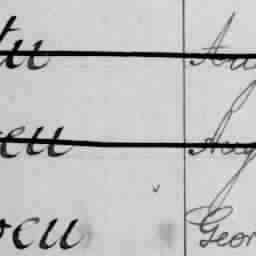 tu Au
eu Aug
ocu Geor